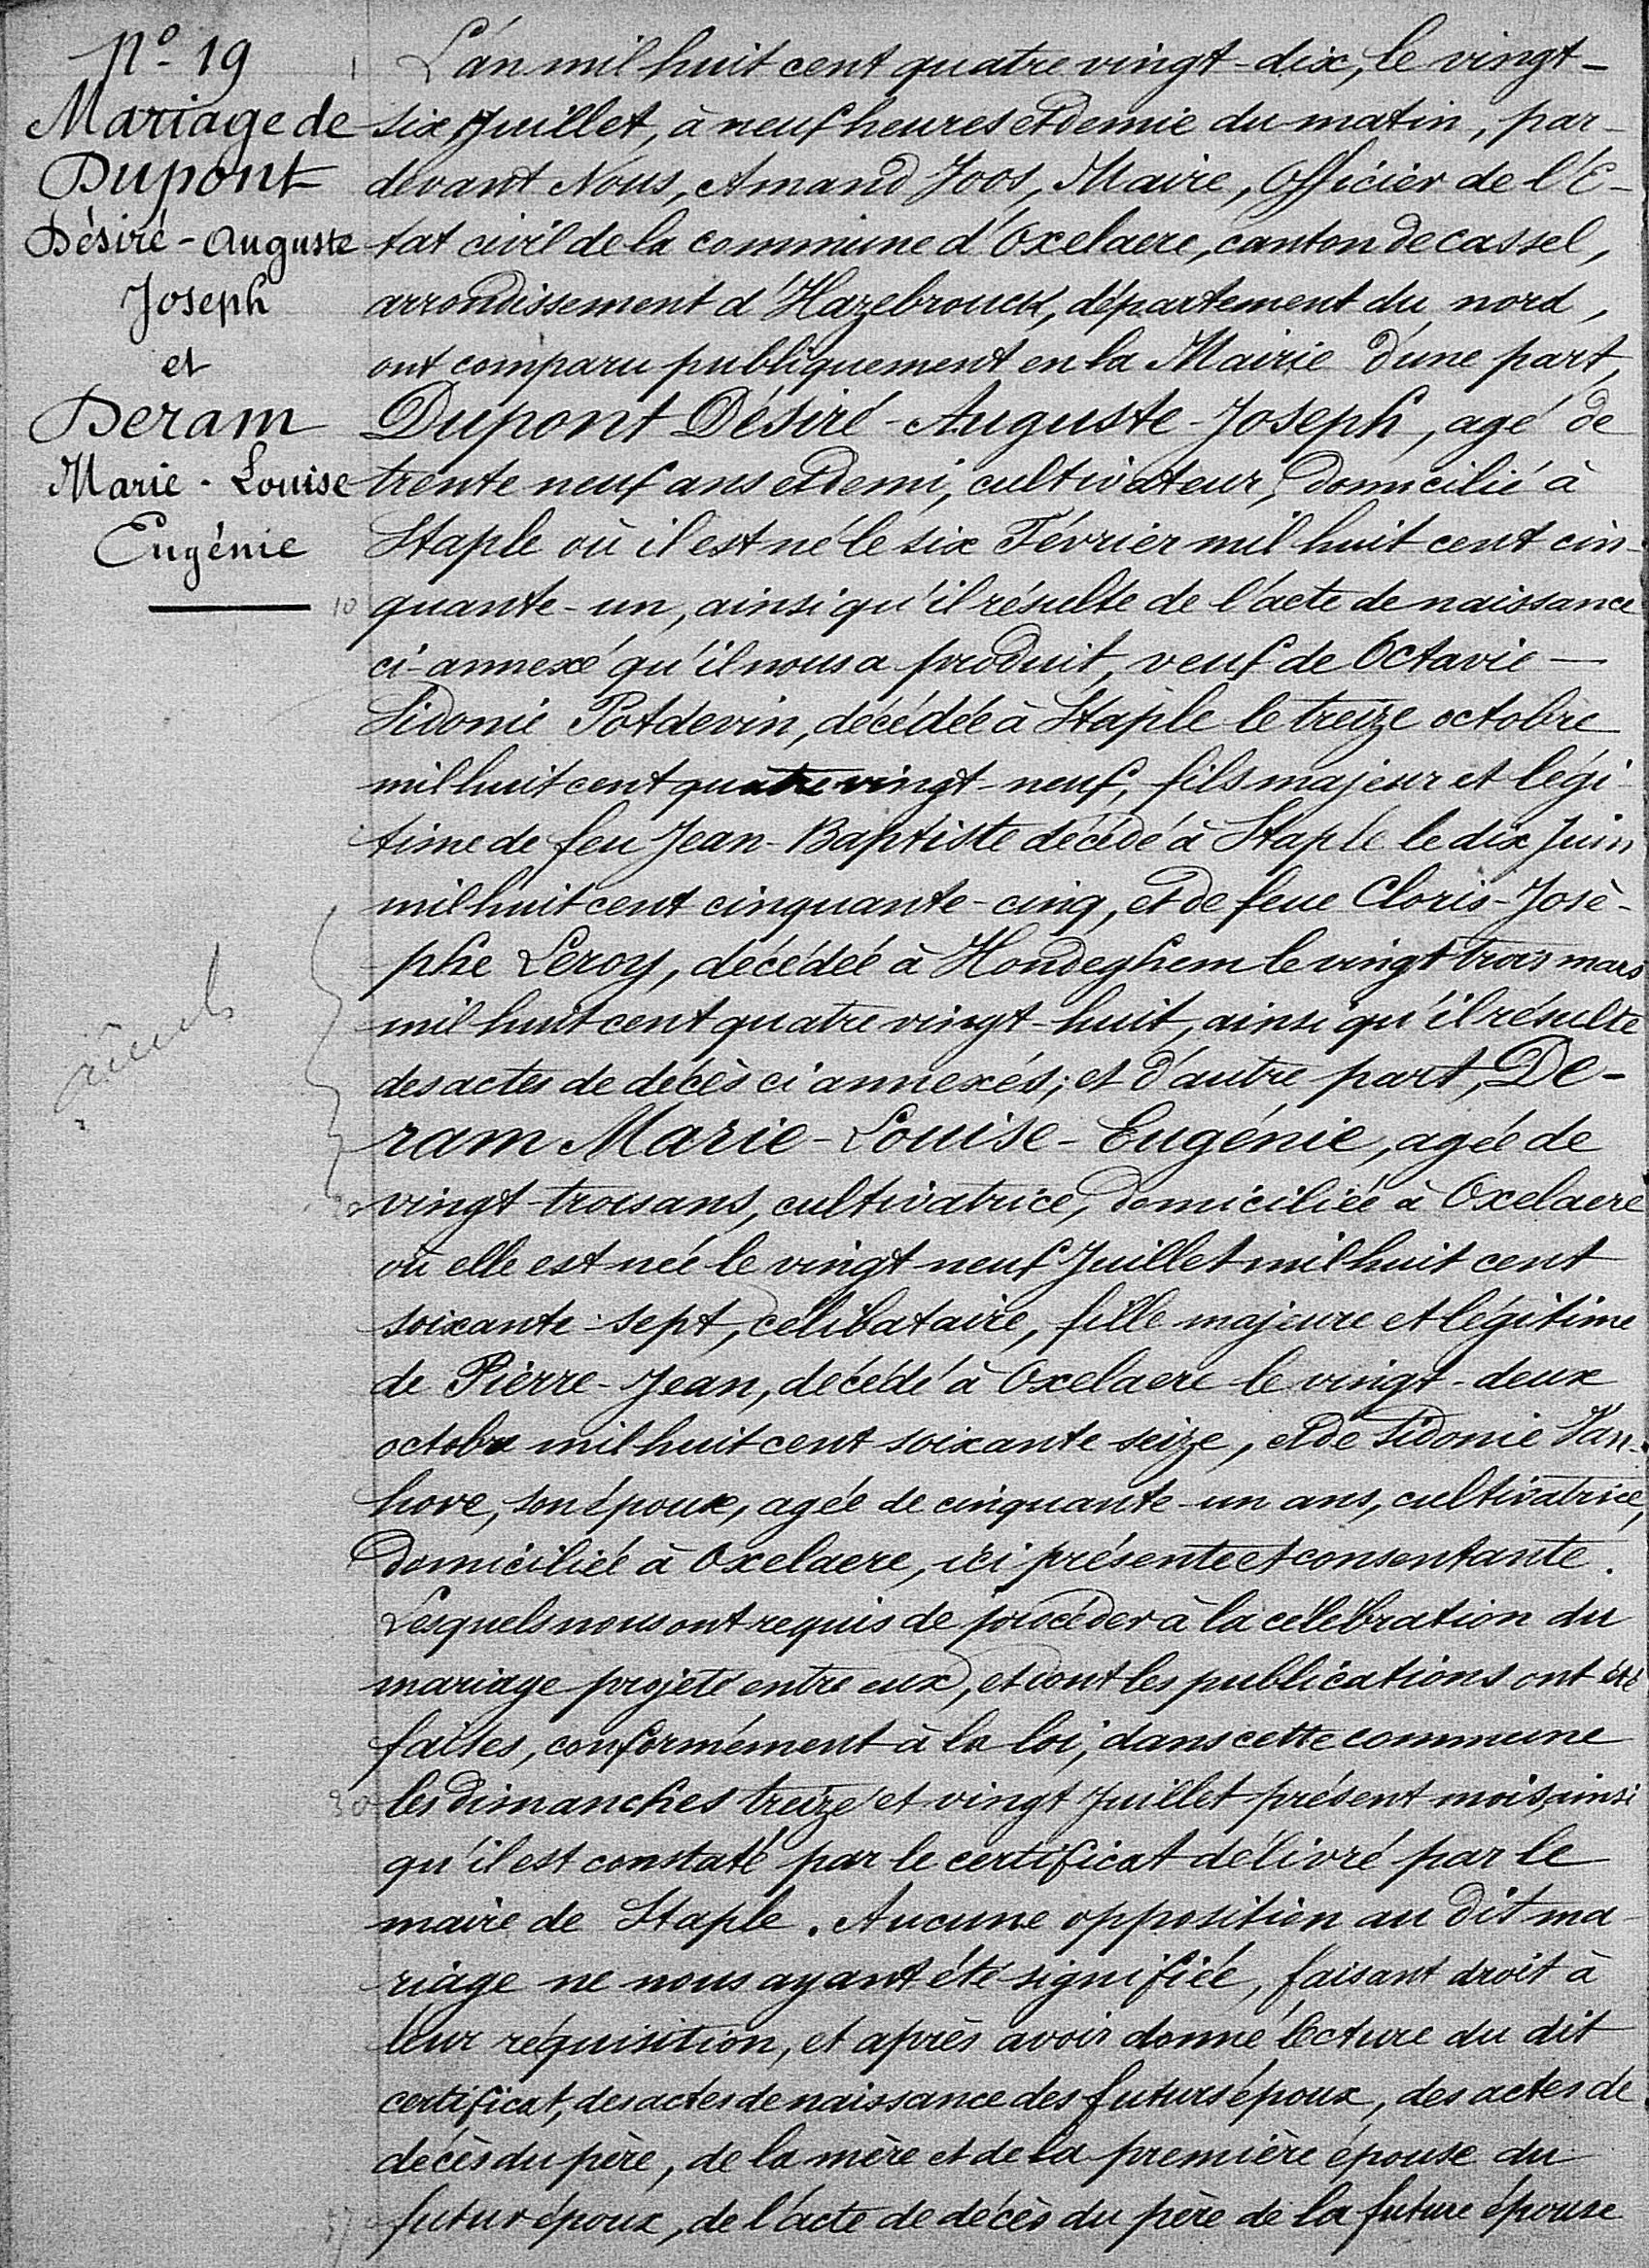 N° 19
Mariage de
Dupont
Désiré - Auguste
Joseph
et
Deram
Marie - Louise
Eugénie
1 L'an mil huit cent quatre vingt-dix, le vingt-
six Juillet, à neuf heures et demie du matin, par-
devant Nous, Amand Joos, Maire, Officier de l'É-
tat civil de la commune d'Oxelaere, canton de cassel,
arrondissement d'Hazebrouck, département du nord,
ont comparu publiquement en la Mairie d'une part,
Dupont Désiré - Auguste - Joseph, agé de
trente neuf ans et demi, cultivateur, domicilié à
Staple où il est né le six Février mil huit cent cin-
10 quante-un, ainsi qu'il résulte de l'acte de naissance
ci-annexé qu'il nous a produit, veuf de Octavie —
Sidonie Potdevin, décédée à Staple le treize octobre
mil huit cent quatre vingt-neuf, fils majeur et légi-
time de feu Jean-Baptiste décédé à Staple le dix Juin
mil huit cent cinquante-cinq, et de feue Cloris-Josè-
phe Leroy, décédée à Hondeghem le vingt trois mars
mil huit cent quatre vingt-huit, ainsi qu'il résulte
des actes de décès ci annexés; et d'autre part, De-
ram Marie - Louise - Eugénie, agée de
vingt-trois ans, cultivatrice, domiciliée à Oxelaere
où elle est née le vingt neuf Juillet mil huit cent
soixante-sept, célibataire, fille majeure et légitime
de Pierre-Jean, décédé à Oxelaere le vingt-deux
octobre mil huit cent soixante seize, et de Sidonie Van-
hove, son époux, agée de cinquante-un ans, cultivatrice,
domiciliée à Oxelaere, ici présente et consentante.
Lesquels nous ont requis de procéder à la célébration du
mariage projeté entre eux, et dont les publications ont été
faites, conformément à la loi, dans cette commune
30 les dimanches treize et vingt Juillet présent mois, ainsi
qu'il est constaté par le certificat délivré par le
maire de Staple. Aucune opposition au dit ma-
riage ne nous ayant été signifiée, faisant droit à
leur réquisition, et après avoir donné lecture du dit
certificat, des actes de naissance des futurs époux, des actes de
décès du père, de la mère et de la première épouse du
37 futur époux, de l'acte de décès du père de la future épouse